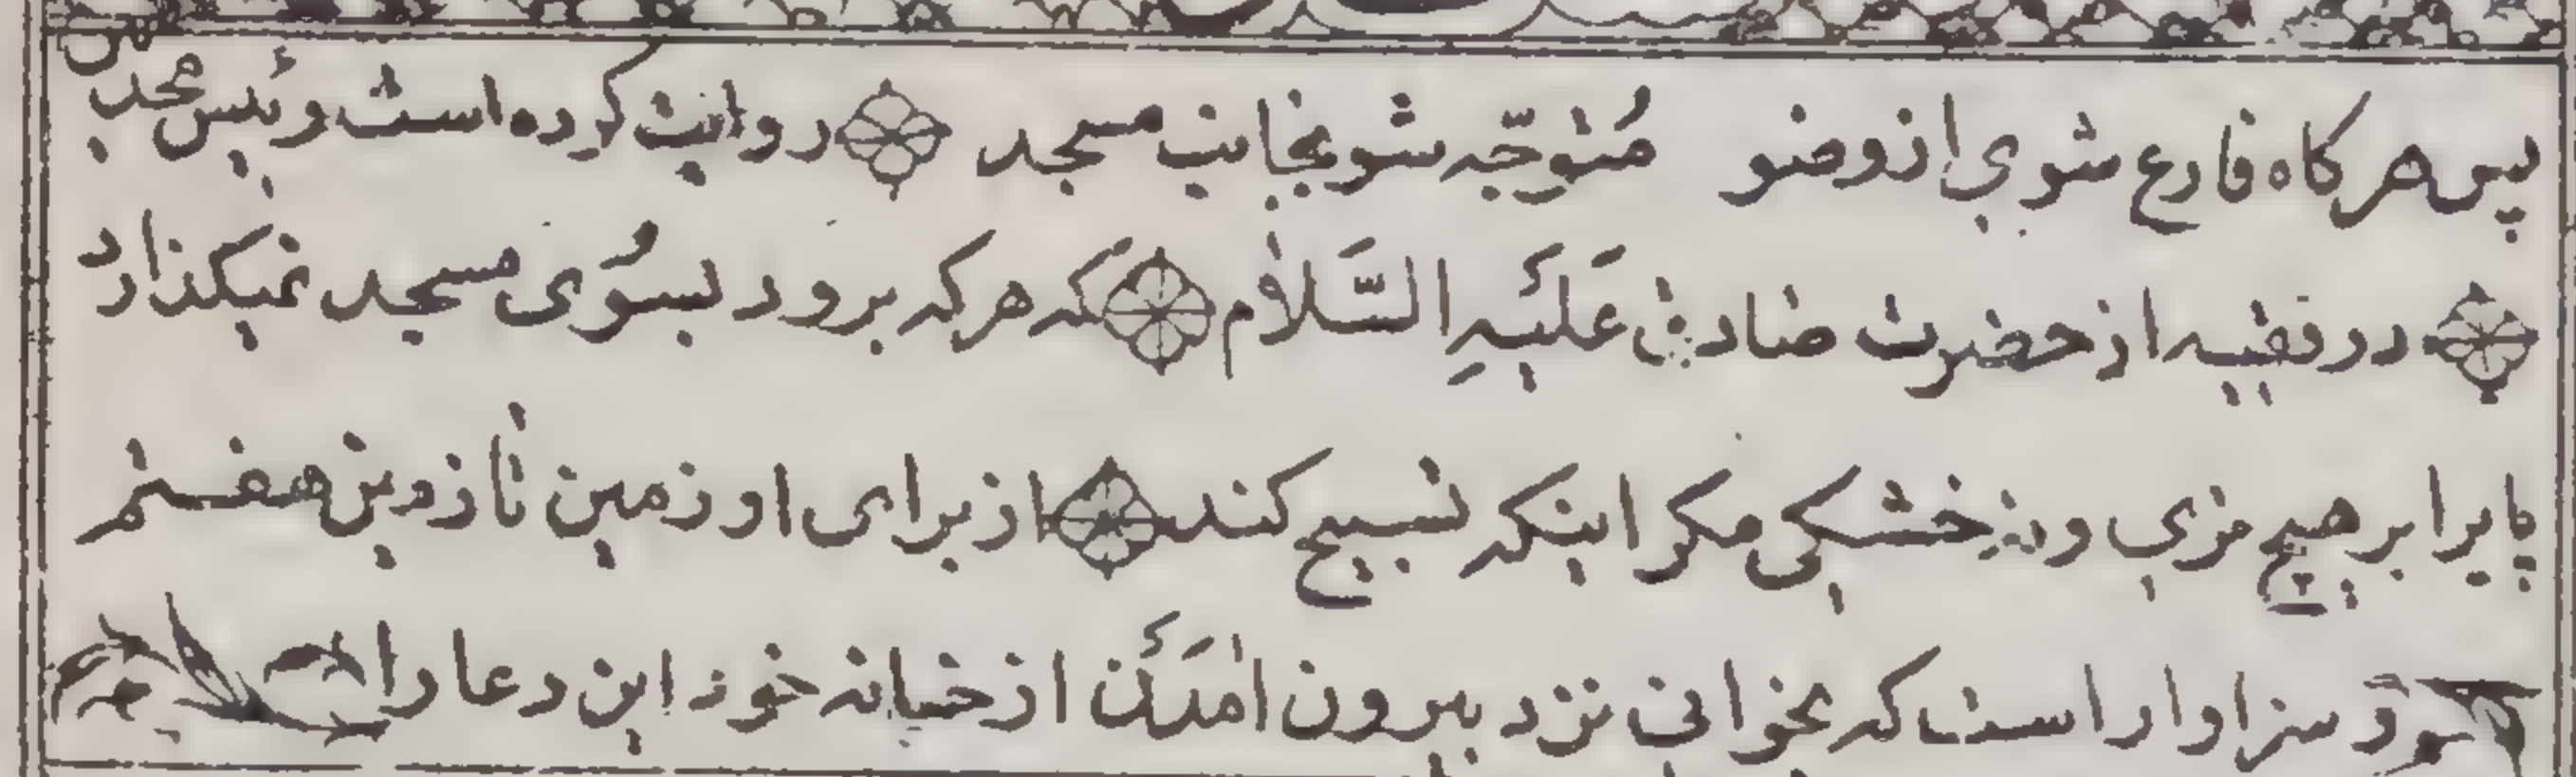 پس هرکاه فارع شوی از وضو متوجّه شو بجانب مسجد روایت کرده است رئیس محدثین
در فقیه از حضرت صادق عَلَیهِ السَّلام که هرکه برود بسُوی مسجد نمیکذارد
پایرا بر هیچ تری و نه خشکی مکر اینکه تسبیح کند از برای او زمین تا زمین هفتم
و سزاوار است که بخوانی نزد بیرون امَدَن از خانه خود این دعا را